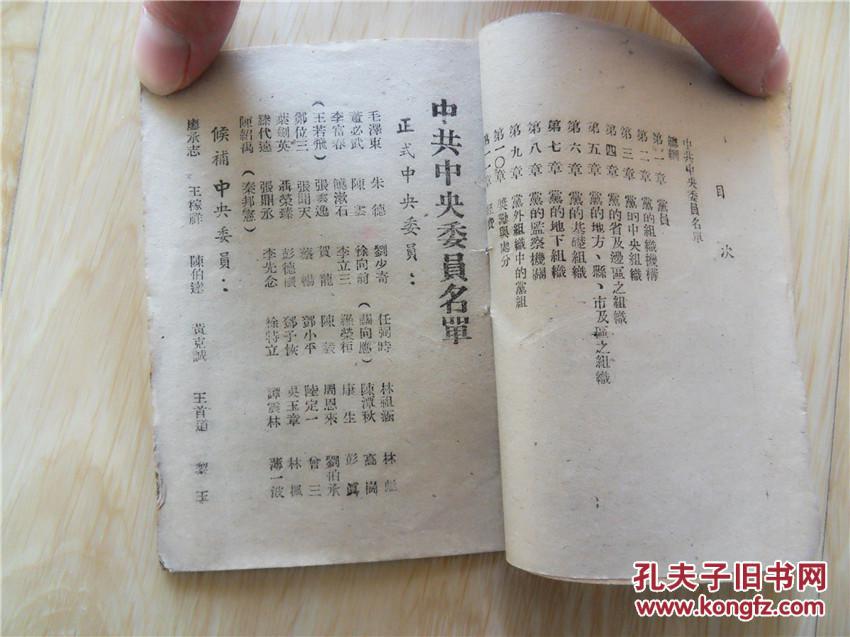 目次
中共中央委員名單
總綱
第一章 黨員
第二章 黨的組織機構
第三章 黨的中央組織
第四章 黨的省及邊區之組織
第五章 黨的地方、縣、市及區之組織
第六章 黨的基礎組織
第七章 黨的地下組織
第八章 黨的監察機關
第九章 黨外組織中的黨組
第一〇章 獎勵與處分
第一一章 經費
中共中央委員名單
正式中央委員：
毛澤東 朱德 劉少奇 任弼時 林祖涵 林彪
董必武 陳雲 徐向前（關向應）陳潭秋 高崗
李富春 饒漱石 李立三 羅榮桓 康生 彭真
（王若飛）張雲逸 賀龍 陳毅 周恩來 劉伯承
鄭位三 張聞天 蔡暢 鄧小平 陸定一 曾三
葉劍英 聶榮臻 彭德懷 鄧子恢 吳玉章 林楓
滕代遠 張鼎丞 李先念 徐特立 譚震林 薄一波
陳紹禹（秦邦憲）
候補中央委員：
廖承志 王稼祥 陳伯達 黃克誠 王首道 黎玉
孔夫子旧书网
www.kongfz.com